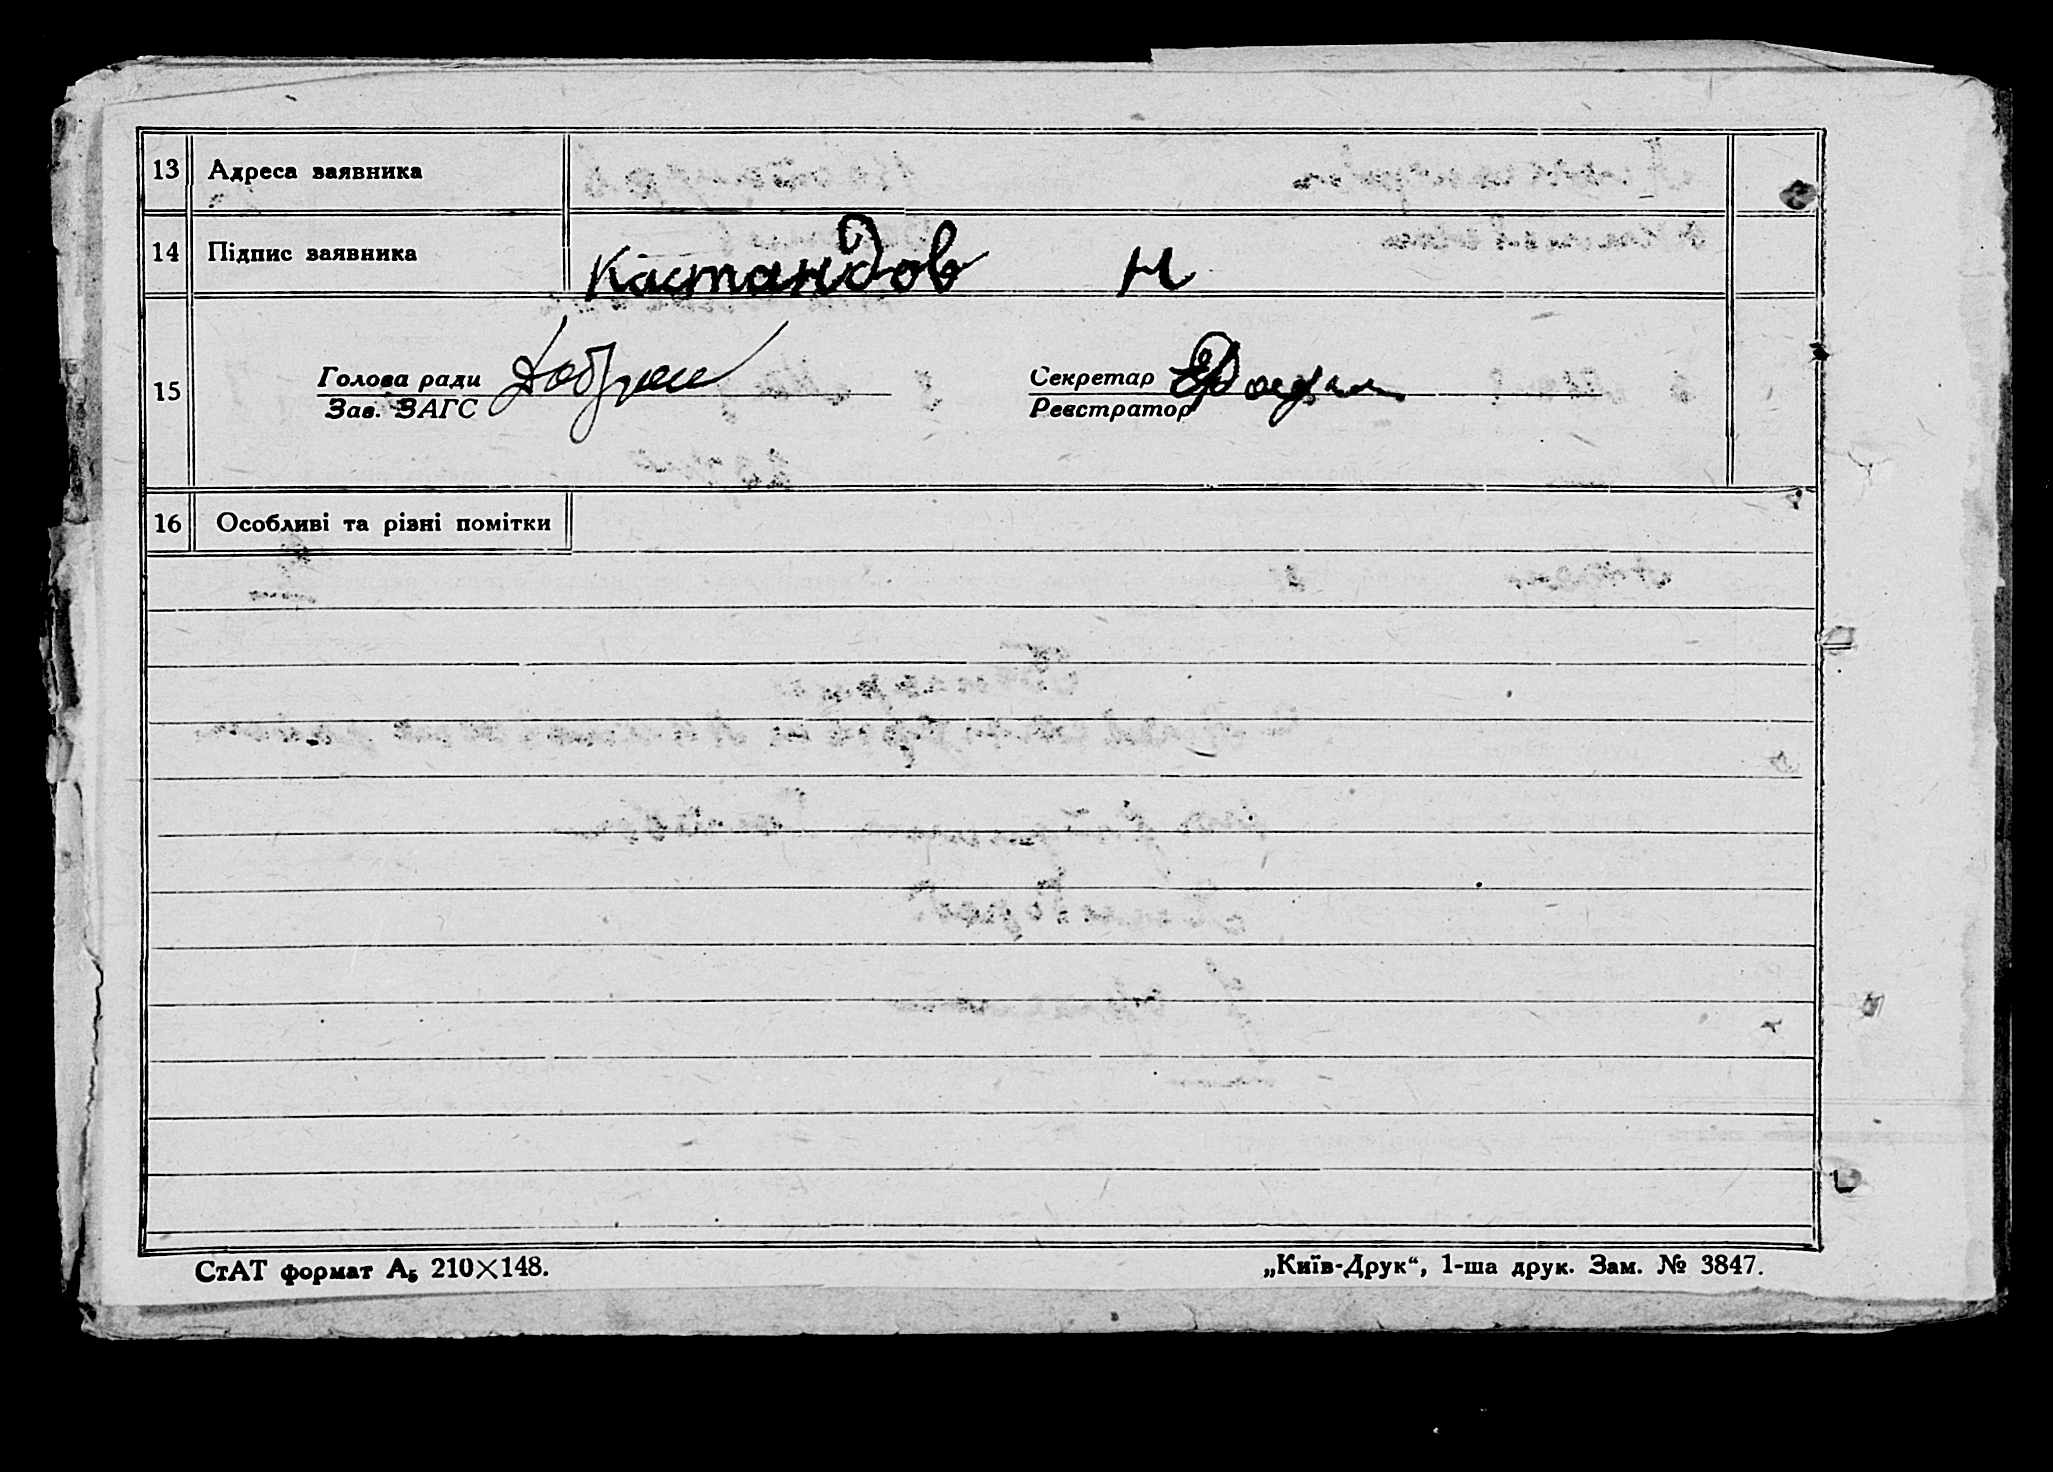 13 Адреса заявника
14 Підпис заявника Кастандов Н
15 Голова ради
Зав. ЗАГС
Секретар
Реєстратор
16 Особливі та різні помітки
СтАТ формат А5 210×148.
„Київ-Друк“, 1-ша друк. Зам. № 3847.